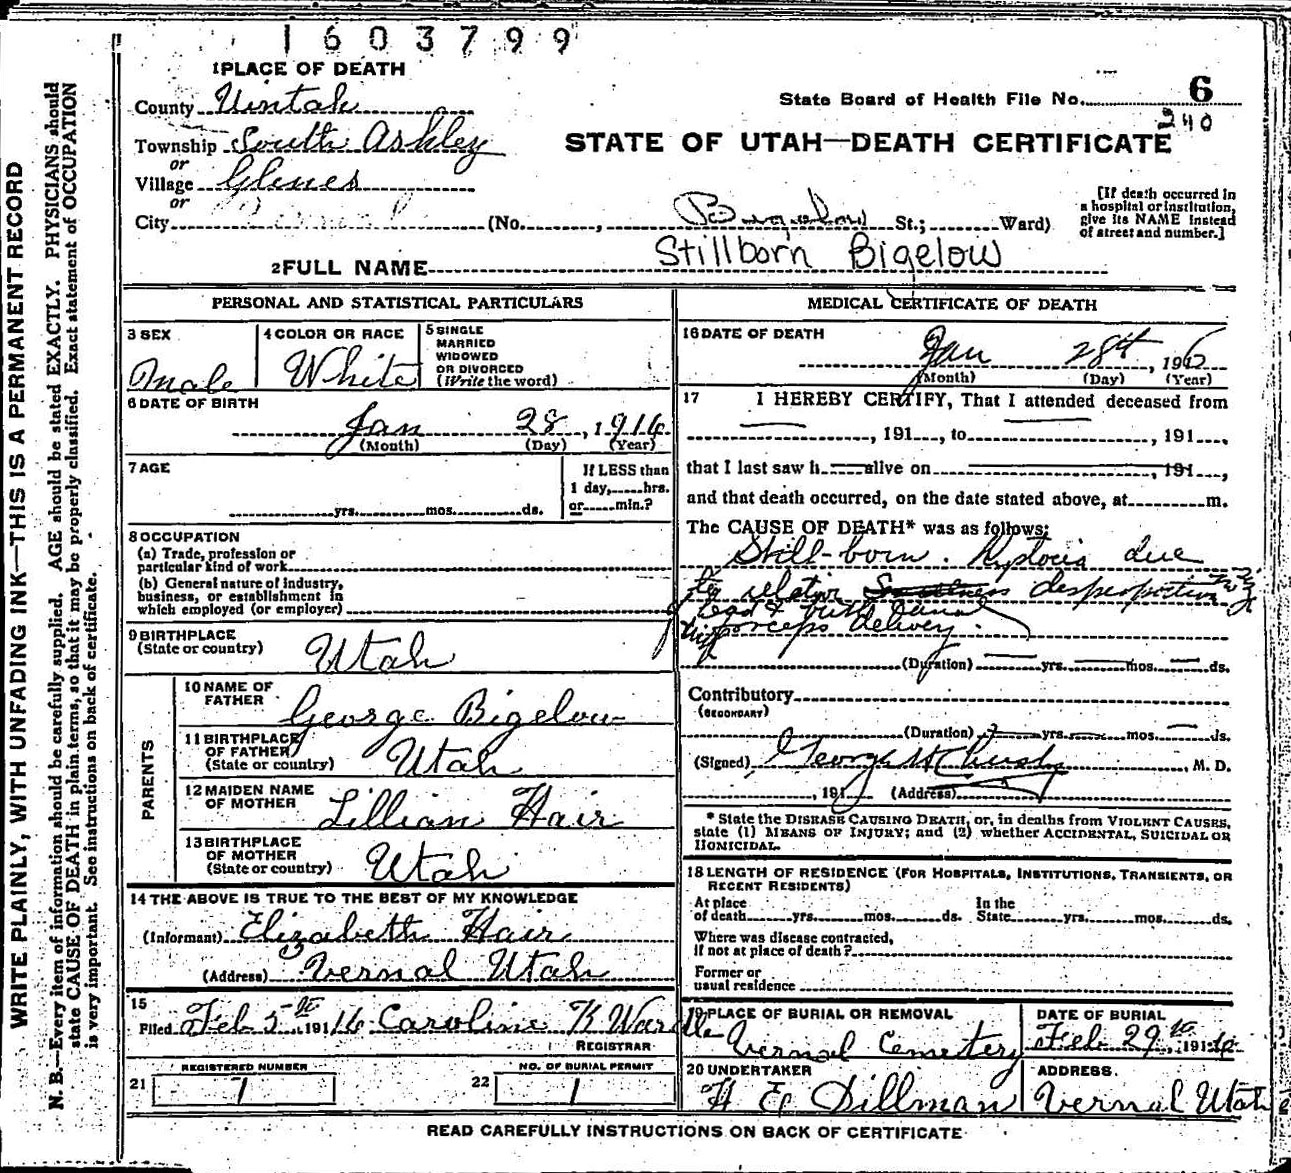 1603799
1 PLACE OF DEATH
County Uintah
State Board of Health File No. 6
240
Township South Ashley
STATE OF UTAH—DEATH CERTIFICATE
or
Village Glines
or
City (No. , Bigelow St.; Ward)
[If death occurred in
a hospital or institution,
give its NAME instead
of street and number.]
2 FULL NAME Stillborn Bigelow
PERSONAL AND STATISTICAL PARTICULARS
3 SEX
Male
4 COLOR OR RACE
White
5 SINGLE
MARRIED
WIDOWED
OR DIVORCED
(Write the word)
6 DATE OF BIRTH
Jan 28, 1916
(Month) (Day) (Year)
7 AGE
yrs. mos. ds.
If LESS than
1 day, hrs.
or min.?
8 OCCUPATION
(a) Trade, profession or
particular kind of work
(b) General nature of industry,
business, or establishment in
which employed (or employer)
9 BIRTHPLACE
(State or country)
Utah
PARENTS
10 NAME OF
FATHER
George Bigelow
11 BIRTHPLACE
OF FATHER
(State or country)
Utah
12 MAIDEN NAME
OF MOTHER
Lillian Hair
13 BIRTHPLACE
OF MOTHER
(State or country)
Utah
14 THE ABOVE IS TRUE TO THE BEST OF MY KNOWLEDGE
(Informant) Elizabeth Hair
(Address) Vernal Utah
15
Filed Feb 5th 1916 Caroline K Wardle
REGISTRAR
21 REGISTERED NUMBER
1
22 NO. OF BURIAL PERMIT
1
MEDICAL CERTIFICATE OF DEATH
16 DATE OF DEATH
Jan 28th, 1916
(Month) (Day) (Year)
17 I HEREBY CERTIFY, That I attended deceased from
, 191 , to , 191 ,
that I last saw h alive on , 191 ,
and that death occurred, on the date stated above, at m.
The CAUSE OF DEATH* was as follows:
Still-born. Dystocia due
to relative disproportion
head & birth canal
forceps delivery.
(Duration) yrs. mos. ds.
Contributory
(SECONDARY)
(Duration) yrs. mos. ds.
(Signed) George H , M. D.
, 191 (Address)
* State the DISEASE CAUSING DEATH, or, in deaths from VIOLENT CAUSES,
state (1) MEANS OF INJURY; and (2) whether ACCIDENTAL, SUICIDAL OR
HOMICIDAL.
18 LENGTH OF RESIDENCE (FOR HOSPITALS, INSTITUTIONS, TRANSIENTS, OR
RECENT RESIDENTS)
At place
of death yrs. mos. ds.
In the
State yrs. mos. ds.
Where was disease contracted,
if not at place of death?
Former or
usual residence
19 PLACE OF BURIAL OR REMOVAL
Vernal Cemetery
DATE OF BURIAL
Feb 29th, 1916
20 UNDERTAKER
H E Dillman
ADDRESS.
Vernal Utah
READ CAREFULLY INSTRUCTIONS ON BACK OF CERTIFICATE
WRITE PLAINLY, WITH UNFADING INK—THIS IS A PERMANENT RECORD
N. B.—Every item of information should be carefully supplied. AGE should be stated EXACTLY. PHYSICIANS should
state CAUSE OF DEATH in plain terms, so that it may be properly classified. Exact statement of OCCUPATION
is very important. See instructions on back of certificate.